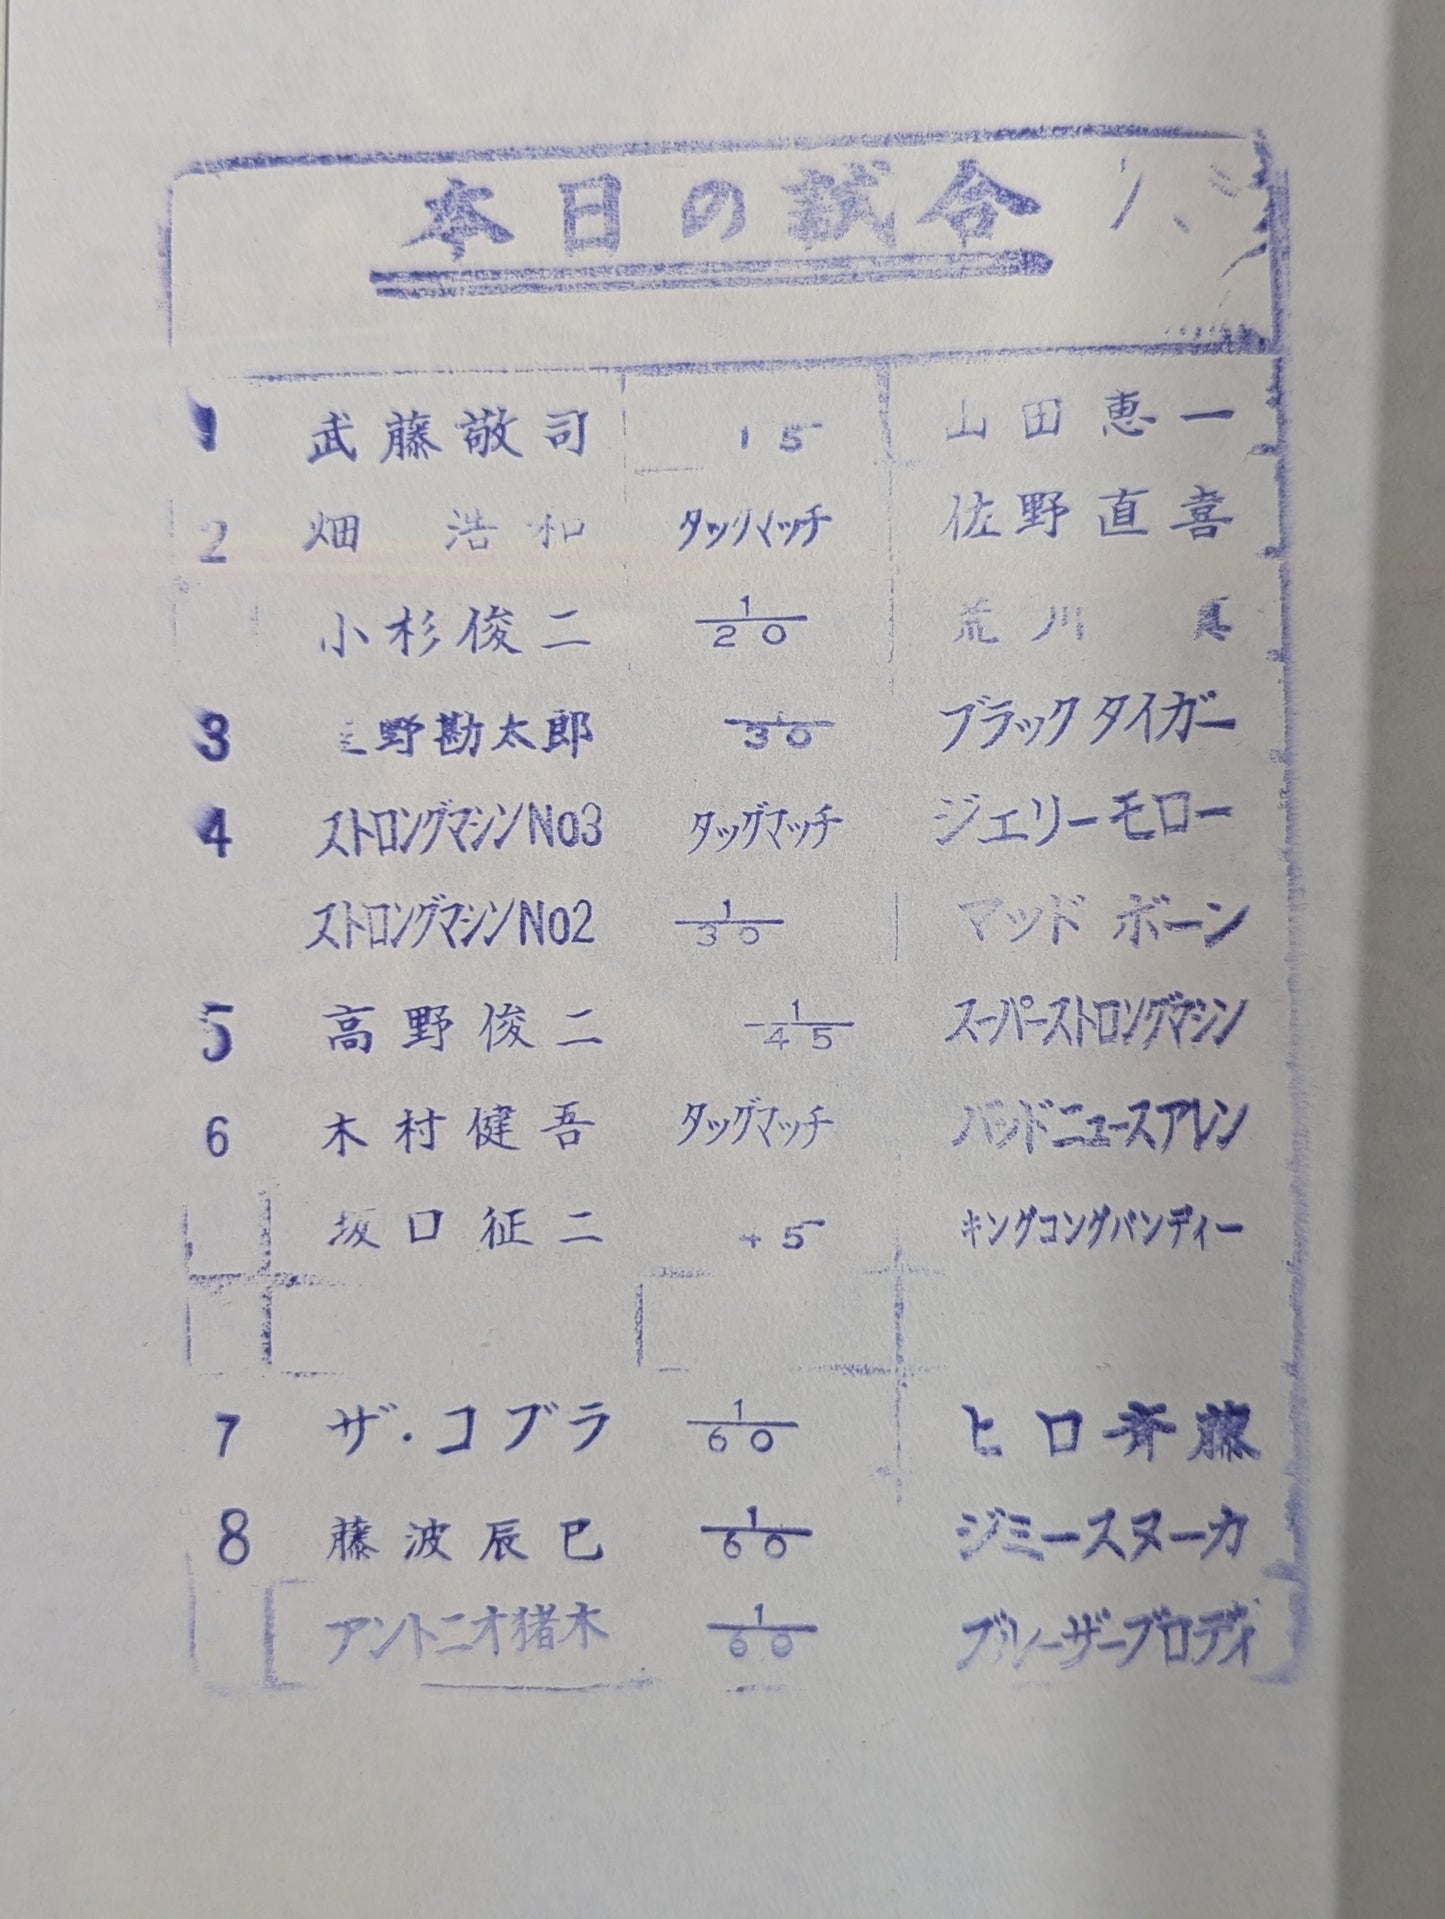 本日の試合
1 武藤敬司 15 山田恵一
2 畑 浩和 タッグマッチ 佐野直喜
小杉俊二 1/20 荒川 真
3 野勘太郎 1/30 ブラックタイガー
4 ストロングマシンNo3 タッグマッチ ジェリーモロー
ストロングマシンNo2 1/30 マッド ボーン
5 高野俊二 1/45 スーパーストロングマシン
6 木村健吾 タッグマッチ バッドニュースアレン
坂口征二 45 キングコングバンディー
7 ザ・コブラ 1/60 ヒロ斉藤
8 藤波辰巳 1/60 ジミースヌーカ
アントニオ猪木 1/60 ブルーザーブロディ